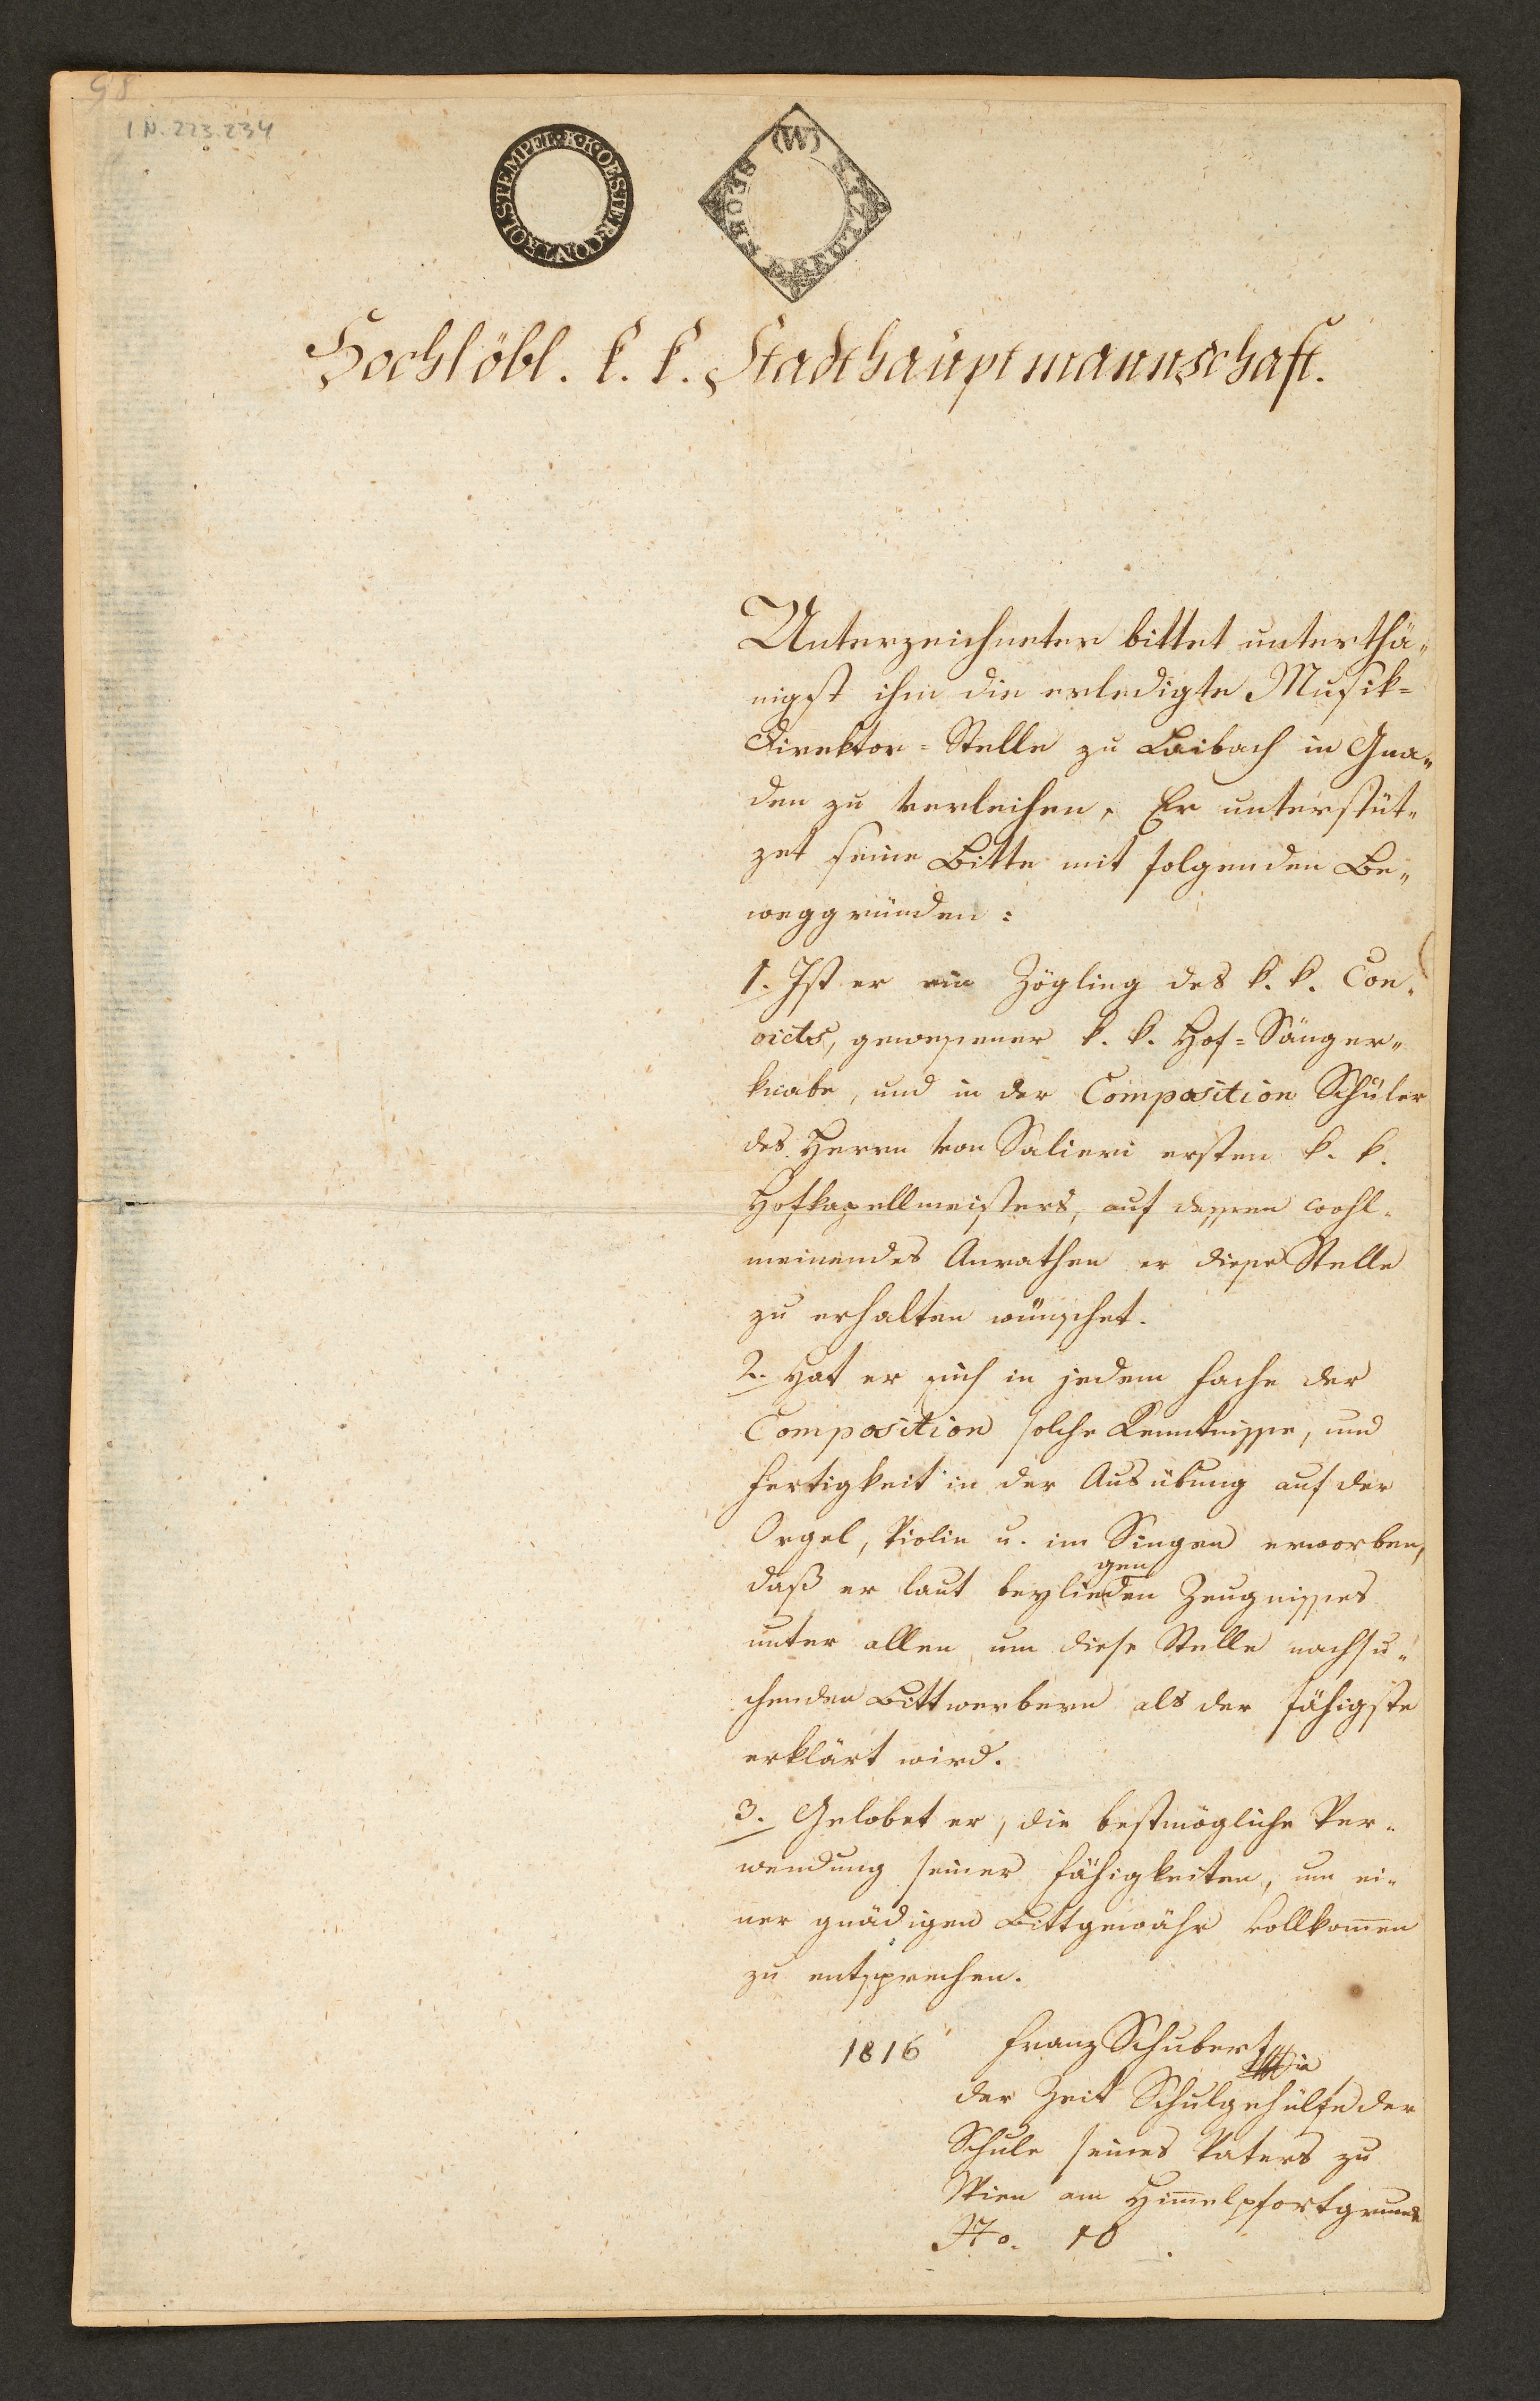 98
I.N. 223.234
CONTROLSTEMPEL · K · K · OESTER
(W)
SECHS KREUZER
Hochlöbl. k. k. Stadthauptmannschaft.
Unterzeichneter bittet unterthä„
nigst ihm die erledigte Musik=
Direktor=Stelle zu Laibach in Gna„
den zu verleihen. Er unterstüt„
zet seine Bitte mit folgenden Be„
weggründen:
1. Ist er ein Zögling des k. k. Con„
victs, gewesener k. k. Hof=Sänger„
knabe, und in der Composition Schüler
des Herrn von Salieri ersten k. k.
Hofkapellmeisters, auf dessen wohl„
meinendes Anrathen er diese Stelle
zu erhalten wünschet.
2. Hat er sich in jedem Fache der
Composition solche Kenntnisse, und
Fertigkeit in der Ausübung auf der
Orgel, Violin u. im Singen erworben,
gen
daß er laut beylieden Zeugnisses
unter allen um diese Stelle nachsu„
chenden Bittwerbern als der fähigste
erklärt wird.
3. Gelobet er, die bestmögliche Ver„
wendung seiner Fähigkeiten, um ei„
ner gnädigen Bittgewähr vollkom̄en
zu entsprechen.
1816 Franz Schubert
der Zeit Schulgehülfe der
Schule seines Vaters zu
Wien am Him̄elpfortgrund
No. 10.